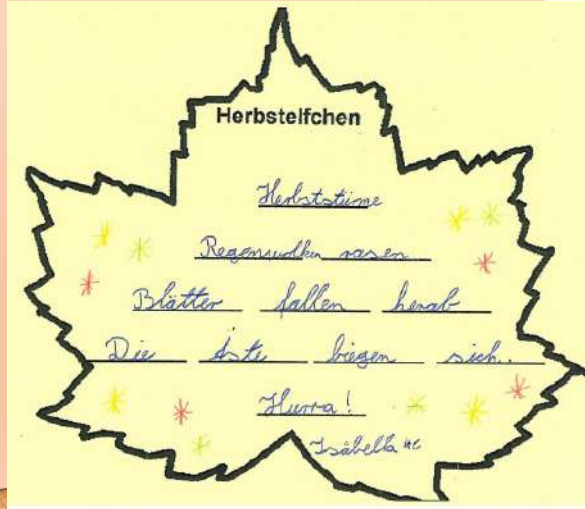 Herbstelfchen
Herbststüme
Regenwolken rasen
Blätter fallen herab
Die Äste biegen sich.
Hurra!
Isabella 4c